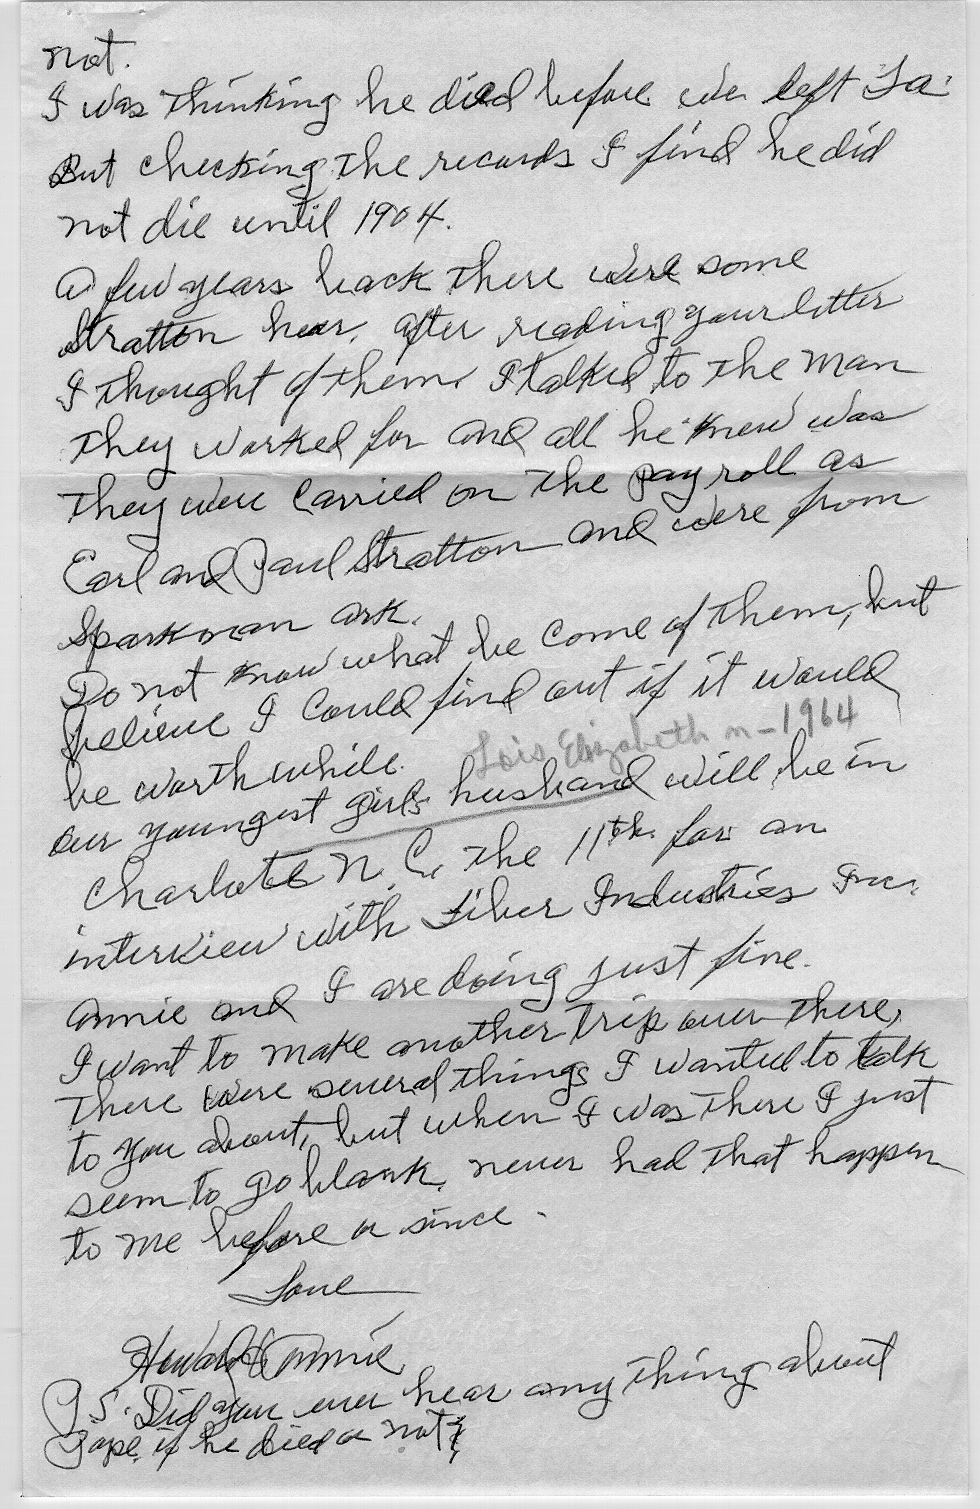 not.
I was thinking he died before we left La.
But checking the records I find he did
not die until 1904.
A few years back there were some
Stratton hear, after reading your letter
I thought of them. I talked to the man
they worked for and all he knew was
they were carried on the payroll as
Earl and Paul Stratton and were from
Sparkman Ark.
Do not know what be come of them, but
believe I could find out if it would
be worth while.
Lois Elizabeth m - 1964
our youngest girls husband will be in
Charlotte N. C. the 11th. for an
interview with Fiber Industries Inc.
Annie and I are doing just fine.
I want to make another trip over there,
there were several things I wanted to talk
to you about, but when I was there I just
seem to go blank, never had that happen
to me before or since.
Love
Howard & Annie
P.S. Did you ever hear any thing about
if he died or not?